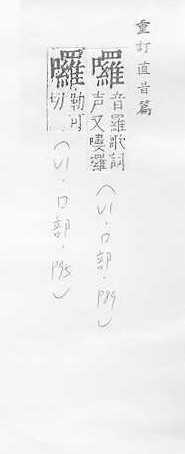 重訂直音篇
囉音羅歌詞声又嘍囉(VI·口部·P89)
囉勒可切(VI·口部·P95)